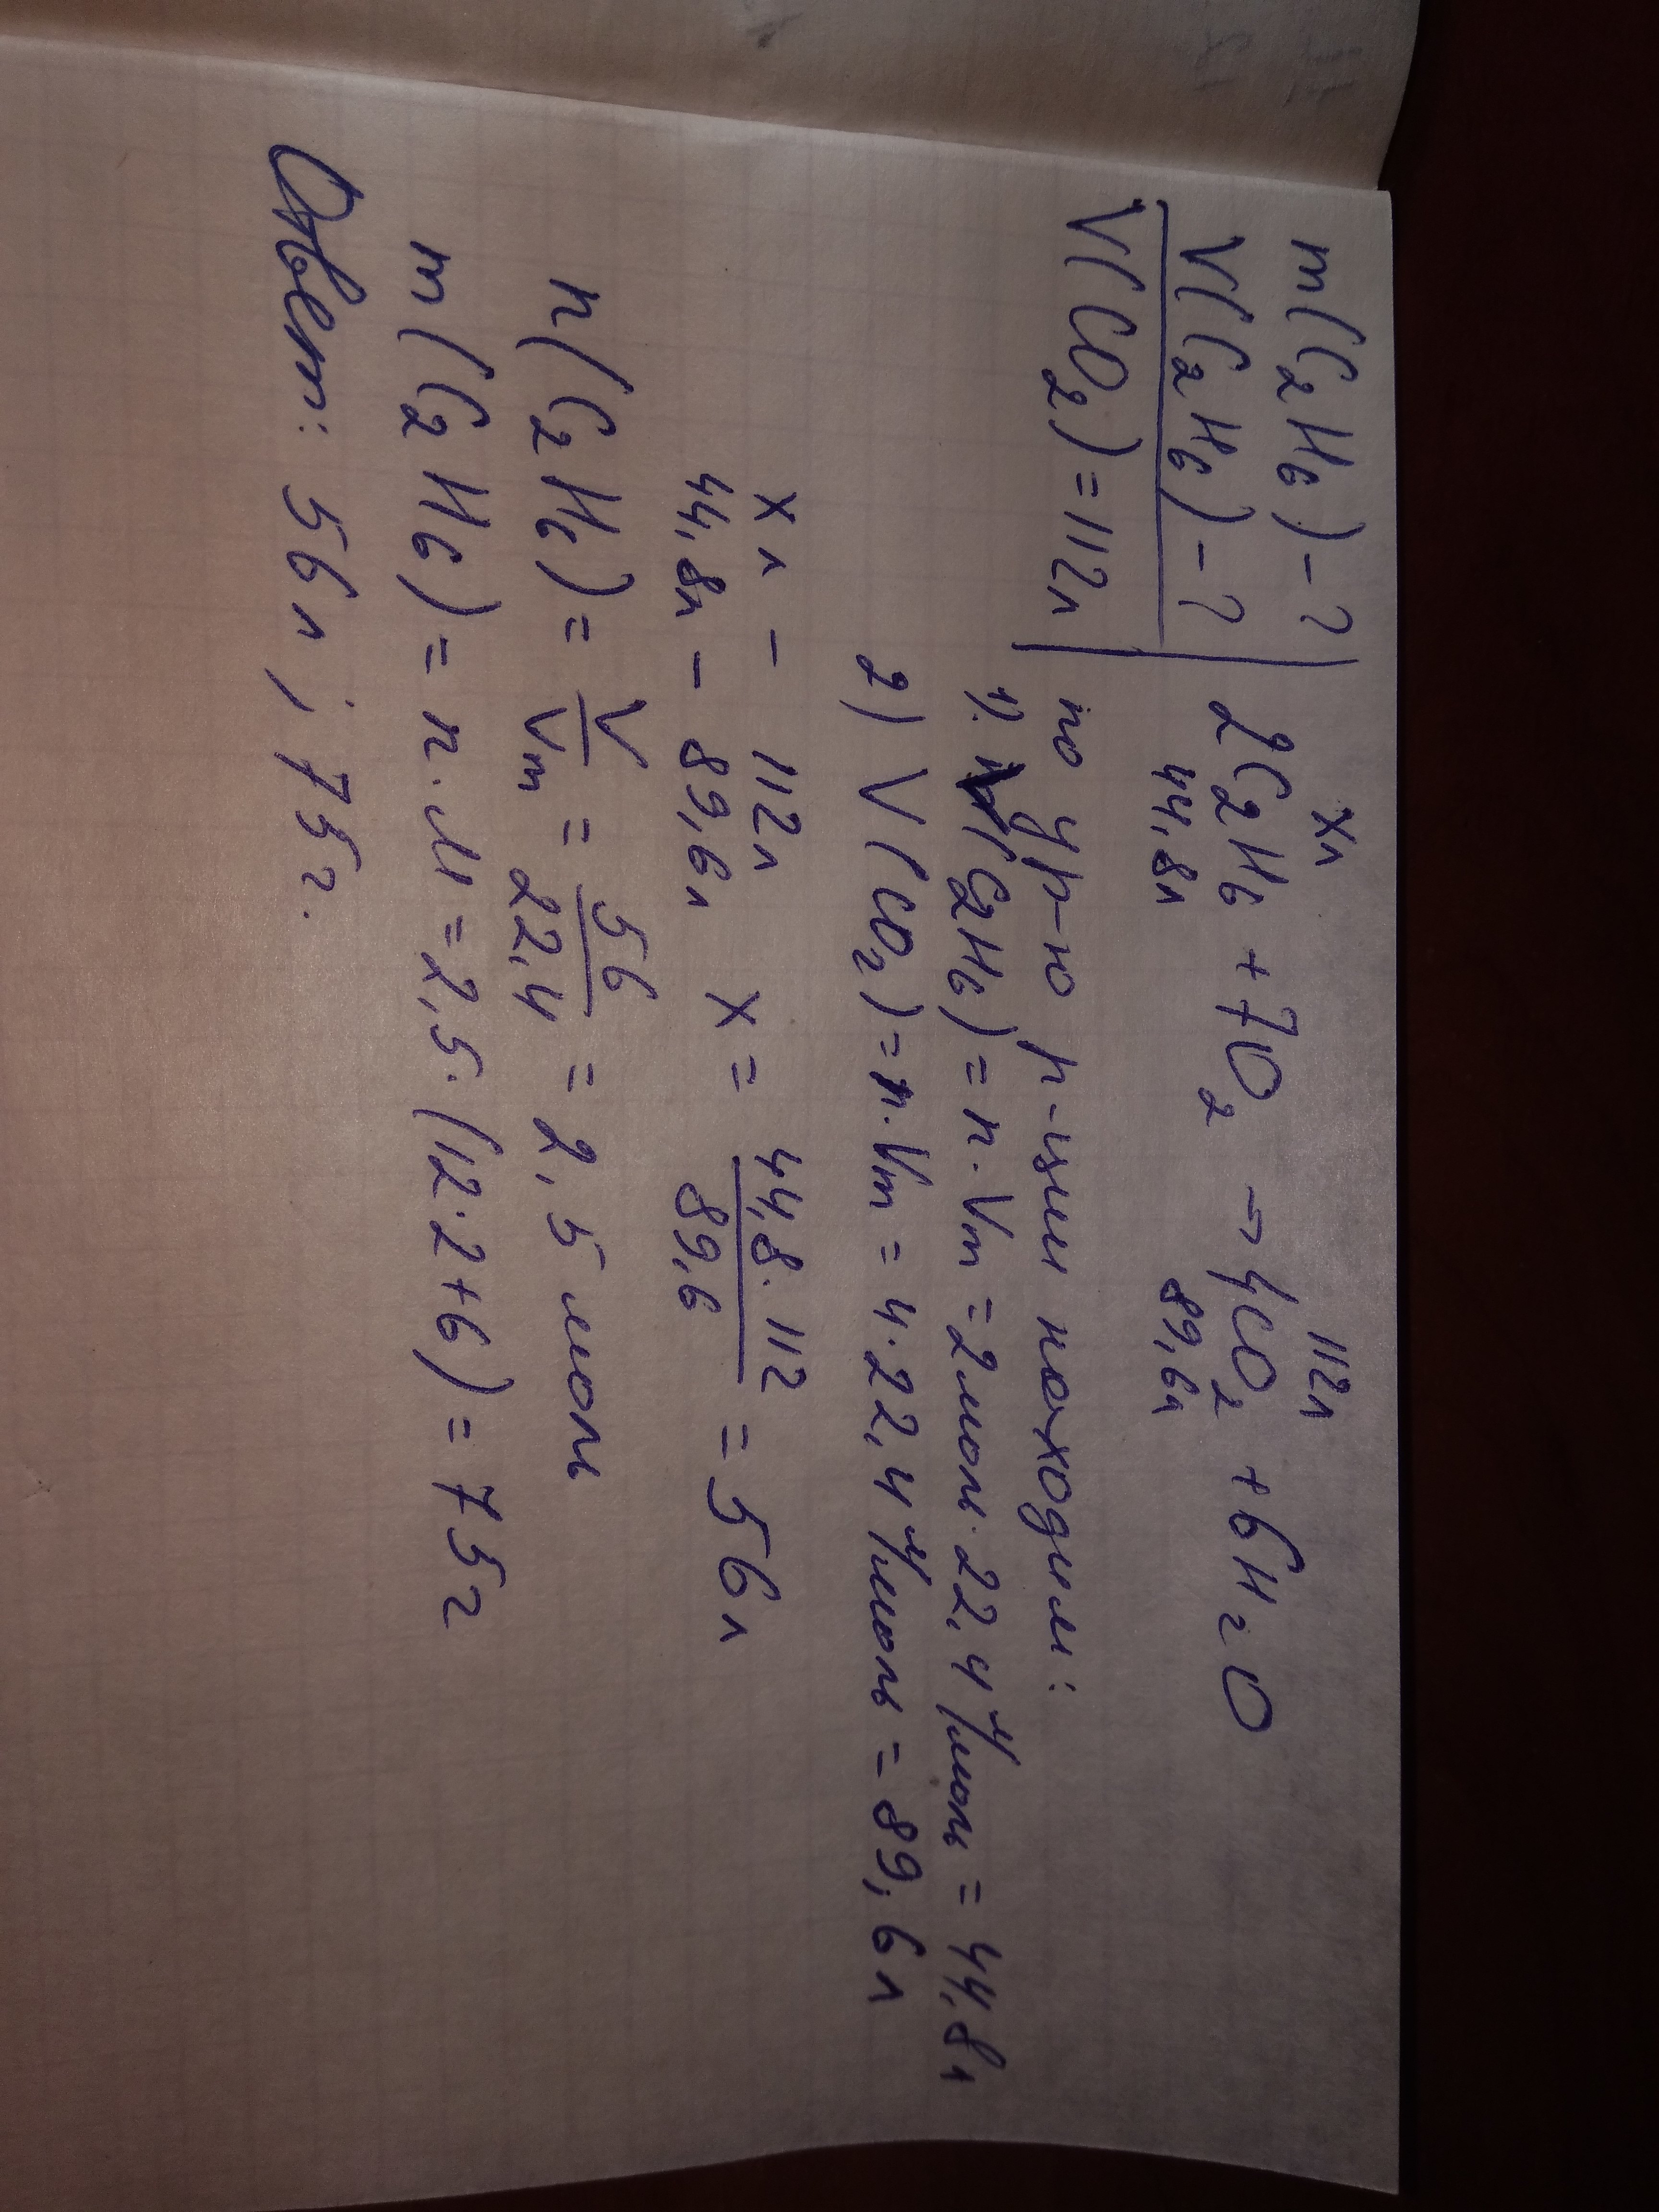 m(C₂H₆)-?
V(C₂H₆)-?
V(CO₂)=112л
хл 112л
2C₂H₆ + 7O₂ → 4CO₂ + 6H₂O
44,8л 89,6л
по ур-ю р-ции находим:
1). V(C₂H₆)=n·Vm=2моль·22,4 л/моль=44,8л
2) V(CO₂)=n·Vm=4·22,4 л/моль=89,6л
х л - 112л
44,8л - 89,6л
x = 44,8·112/89,6 = 56л
n(C₂H₆)=V/Vm=56/22,4=2,5 моль
m(C₂H₆)=n·M=2,5·(12·2+6)=75г
Ответ: 56л ; 75г.